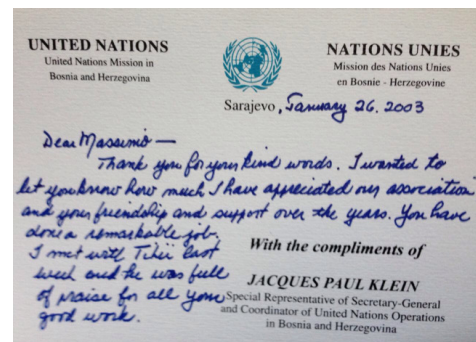 UNITED NATIONS
United Nations Mission in
Bosnia and Herzegovina
NATIONS UNIES
Mission des Nations Unies
en Bosnie - Herzegovine
Sarajevo, January 26. 2003
Dear Massimo —
Thank you for your kind words. I wanted to
let you know how much I have appreciated our association
and your friendship and support over the years. You have
done a remarkable job.
I met with last
week and he was full
of praise for all your
good work.
With the compliments of
JACQUES PAUL KLEIN
Special Representative of Secretary-General
and Coordinator of United Nations Operations
in Bosnia and Herzegovina